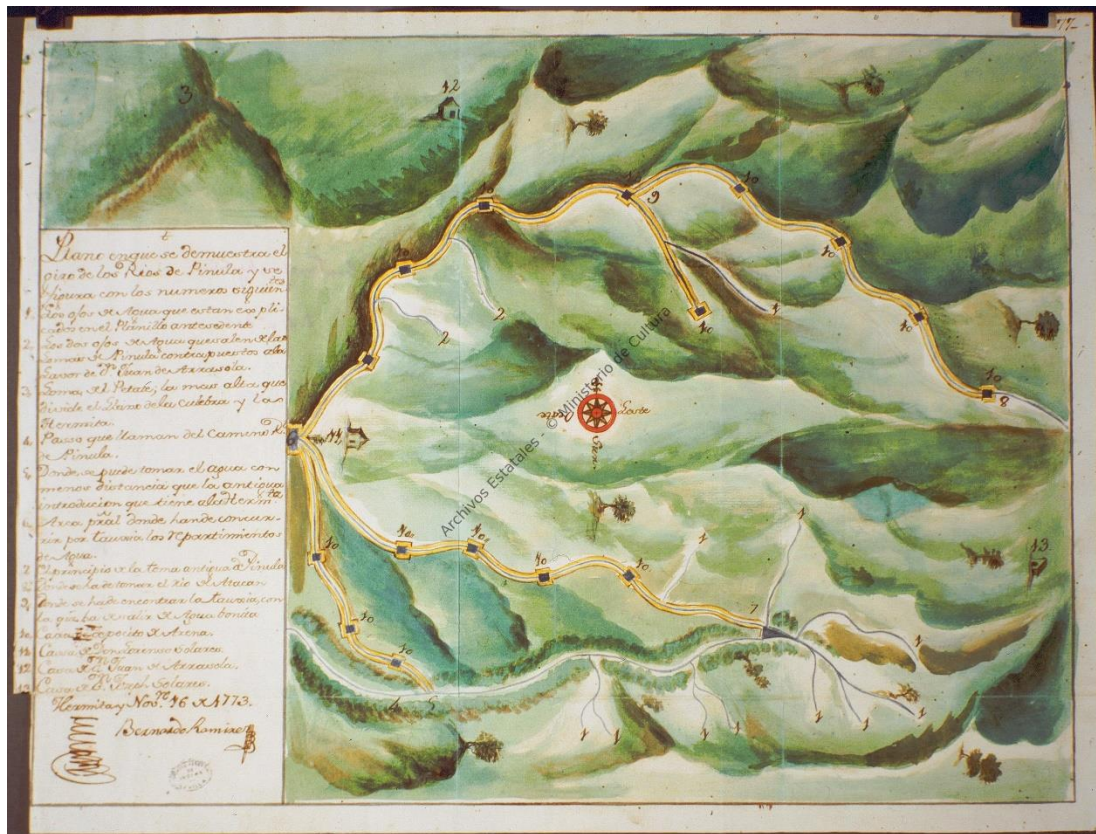 77
Plano en que se demuestra el
giro de los Rios de Pinula y se
figura con los numeros siguien^tes
1. Los ojos de Agua que estan expli-
cados en el Planillo antesedente
2. Los dos ojos de Agua que salen de las
Lomas de Pinula contrapuesta a la
Lavor de D^n Juan de Arrasola.
3. Loma del Petate, la mas alta que
divide el Llano de la culebra y la
Hermita.
4. Passo que llaman del Camino R^l
de Pinula.
5. Donde se puede tomar el agua con
menos distancia que la antigua
introducion que tiene a la Herm^ta
6. Arca pral donde han de concur-
rir por tauxia los Repartimentos
de Agua.
7. El principio de la toma antigua de Pinula
8. Donde se ha de tomar el rio de
9. donde se ha de encontrar la tauxia con
la que ha de salir de Agua bonita
10. Caxas deposito de Arena
11. Casa de Don Lorenso Solares.
12. Casa de D^n Juan de Arrasola.
13. Casa de D^n Solares.
Hermita y Nov^e 16 de 1773.
Bernardo Ramires
3
12
10
1
9
10
10
10
10
8
10
2
2
1
10
1
6
11
Norte
Oeste
Leste
Sur
10
10
10
10
10
10
10
7
1
1
13
1
4
5
1
1
1
1
1
1
Archivos Estatales - © Ministerio de Cultura